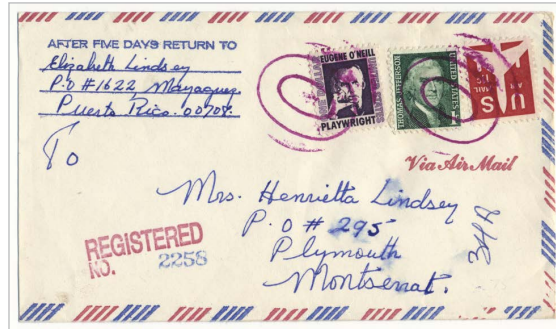 AFTER FIVE DAYS RETURN TO
Elizabeth Lindsey
P.O # 1622 Mayaguez
Puerto Rico. 00708.
EUGENE O'NEILL
PLAYWRIGHT
THOMAS JEFFERSON
UNITED STATES
US
Via Air Mail
To
Mrs. Henrietta Lindsey
P.O # 295
Plymouth
Montserrat.
34A
REGISTERED
NO. 2258